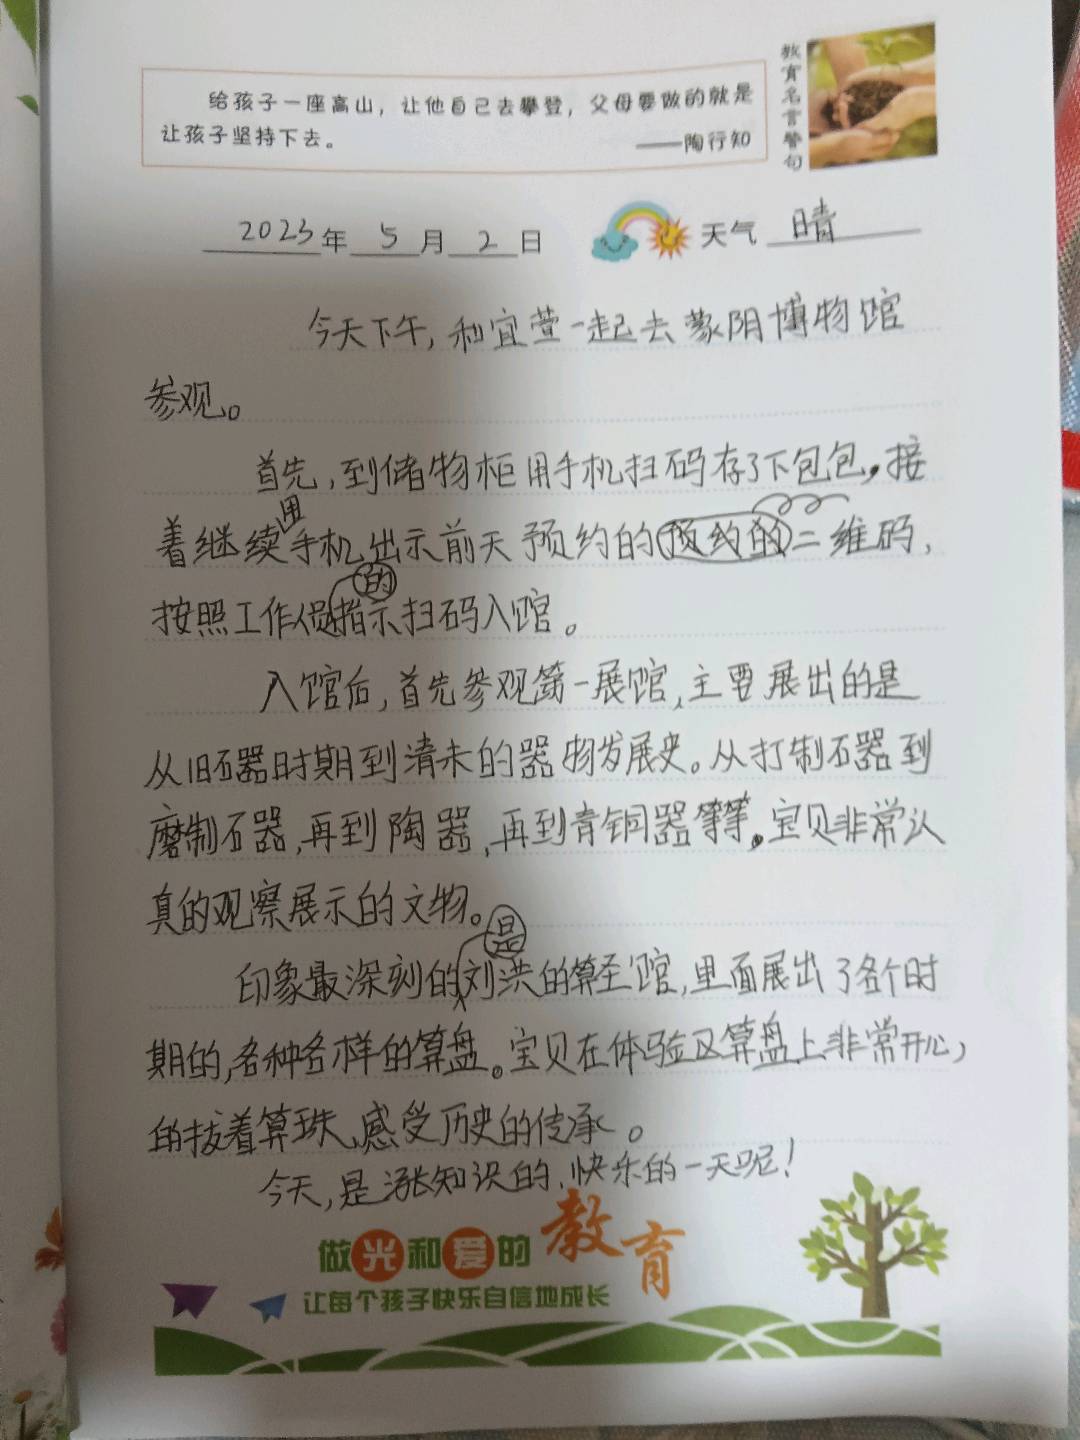 教育名言警句
给孩子一座高山，让他自己去攀登，父母要做的就是
让孩子坚持下去。 ——陶行知
2023年 5月 2日 天气 晴
今天下午，和宜萱一起去蒙阴博物馆
参观。
首先，到储物柜用手机扫码存了下包包，接
着继续用手机出示前天预约的预约的二维码，
按照工作人员的指示扫码入馆。
入馆后，首先参观第一展馆，主要展出的是
从旧石器时期到清末的器物发展史。从打制石器到
磨制石器，再到陶器，再到青铜器等等。宝贝非常认
真的观察展示的文物。
印象最深刻的是刘洪的算圣馆，里面展出了各个时
期的，各种各样的算盘。宝贝在体验区算盘上非常开心，
的拔着算珠，感受历史的传承。
今天，是涨知识的，快乐的一天呢！
做光和爱的教育
让每个孩子快乐自信地成长